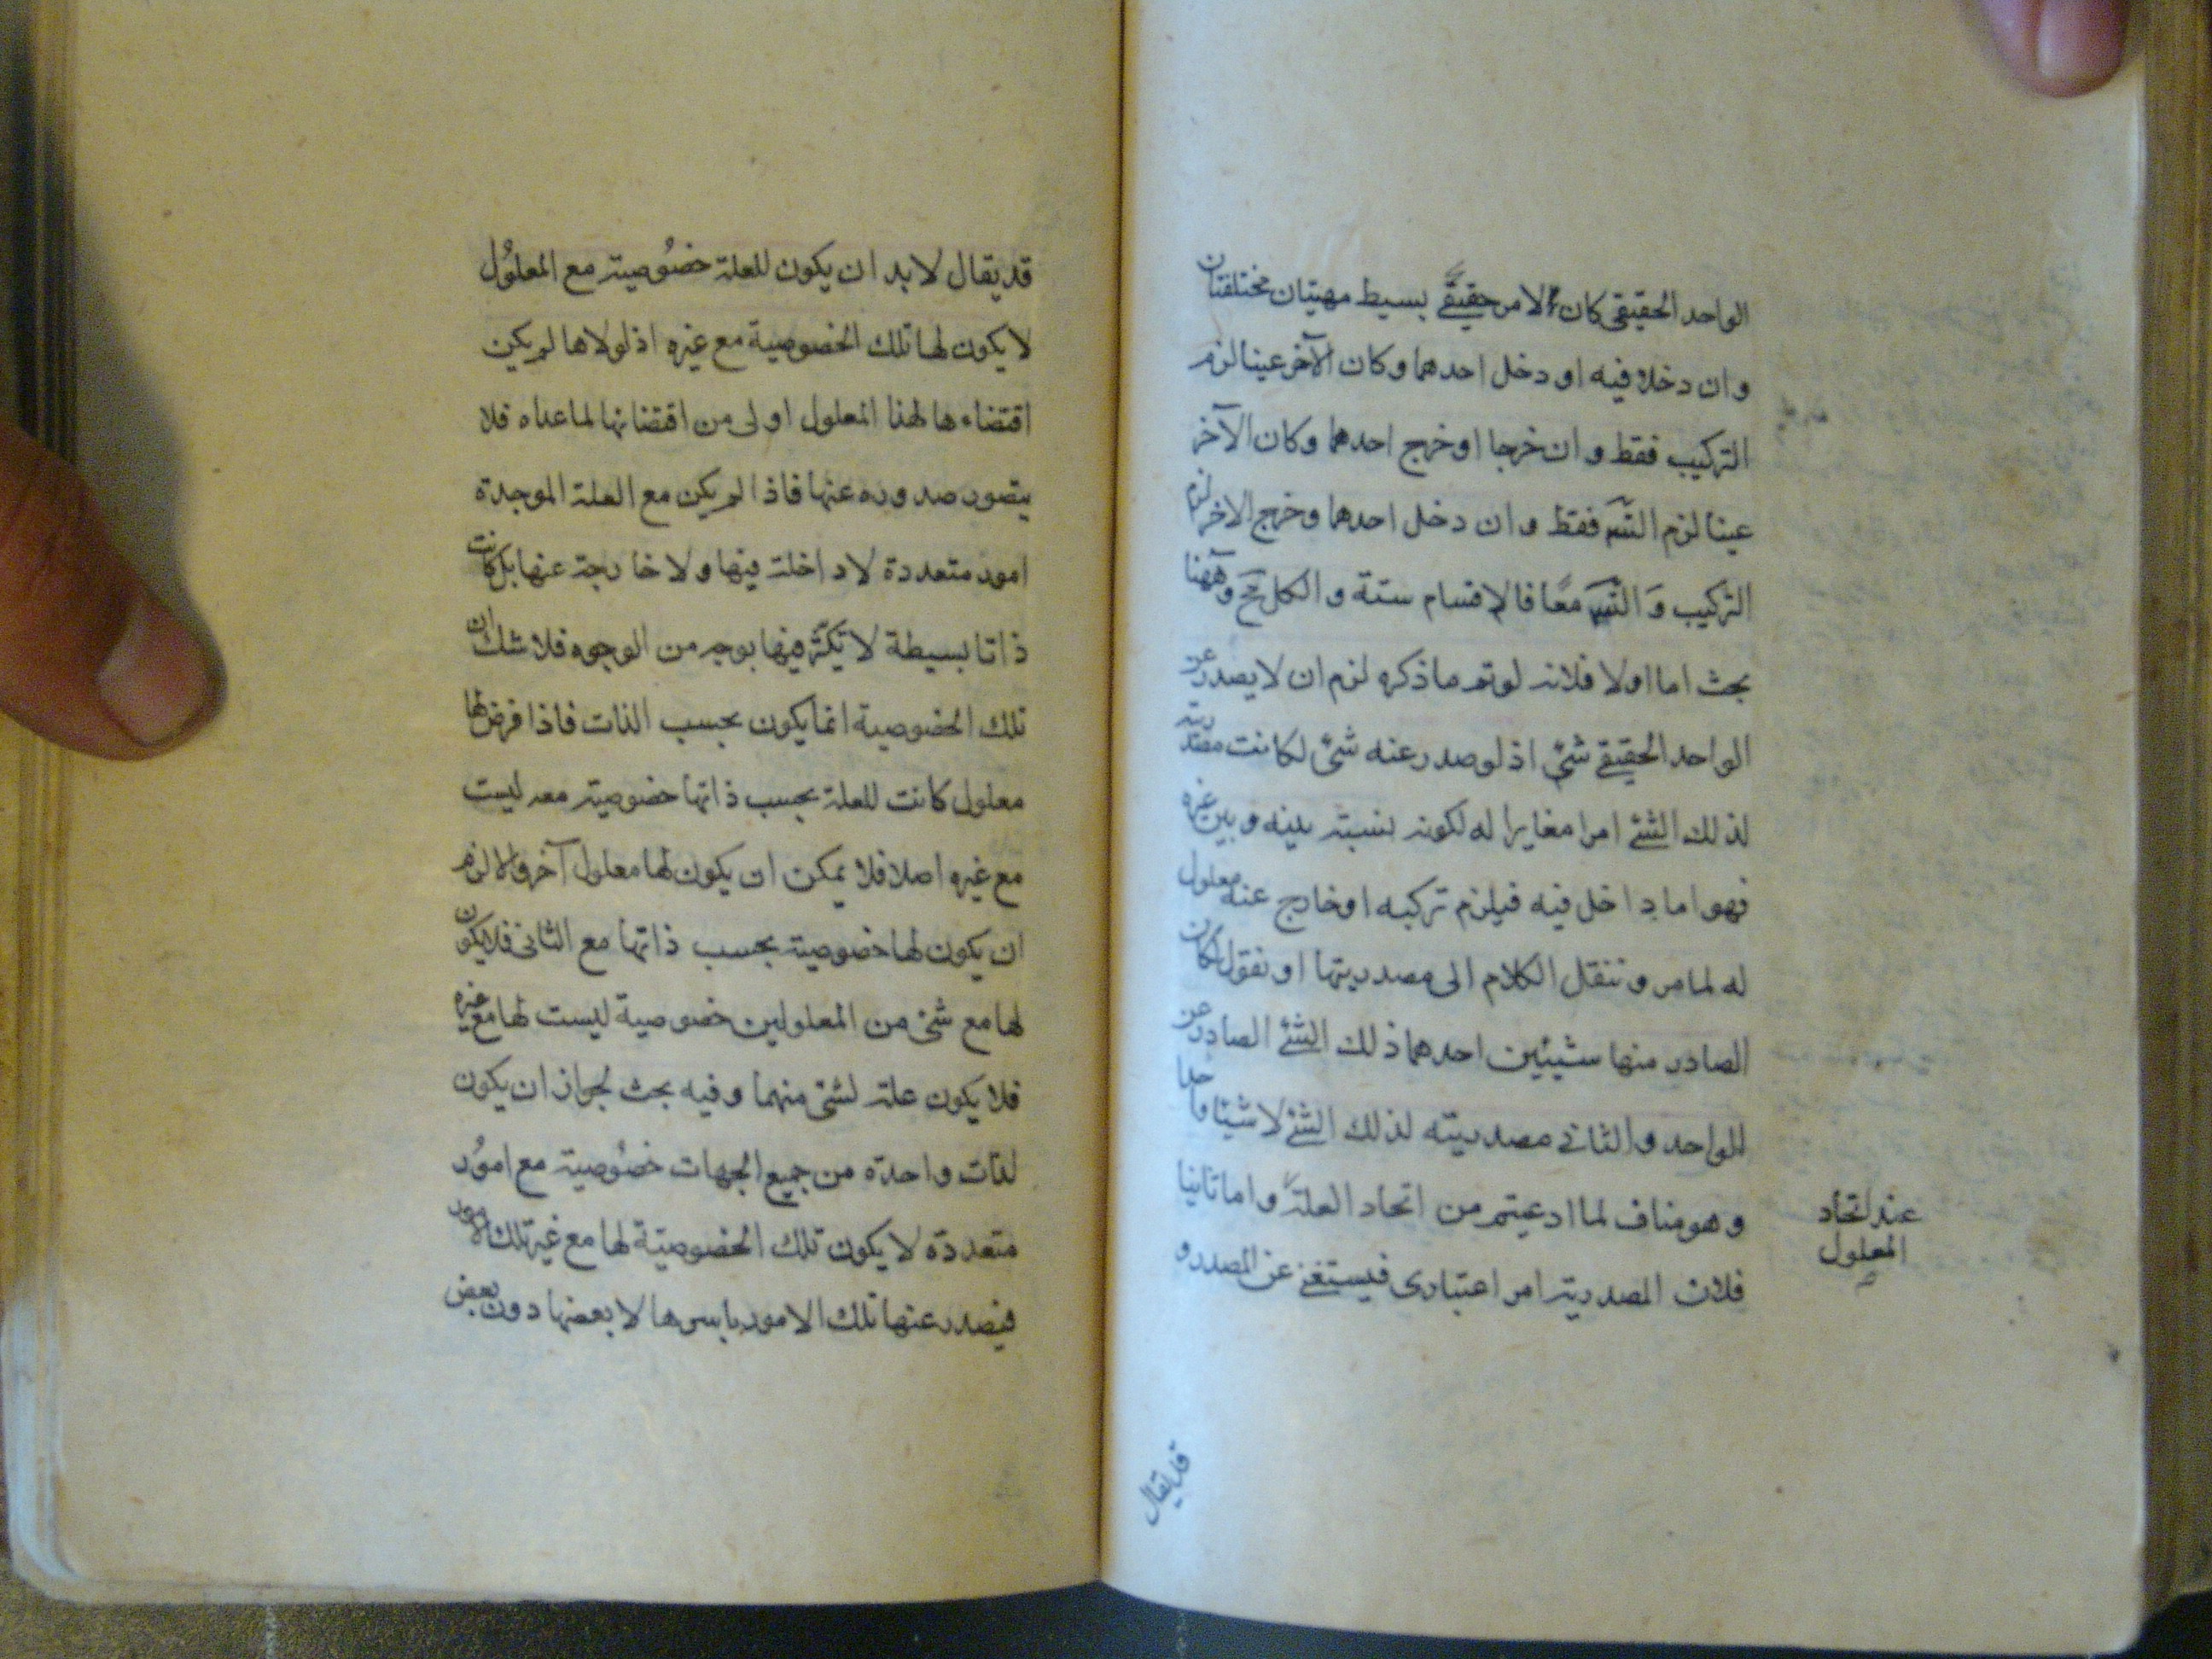 الواحد الحقيقي كان لامر حقيقي بسيط مهيتان مختلفتان
وان دخلا فيه او دخل احدهما وكان الآخر عينا لزم
التركيب فقط وان خرجا او خرج احدهما وكان الآخر
عينا لزم التسـ فقط وان دخل احدهما وخرج الاخر لزم
التركيب وَ التسـ معًا فالاقسام ستة والكل مح وههنا
بحث اما اولا فلانه لوتم ماذكره لزم ان لا يصدر عن
الواحد الحقيقي شئ اذ لو صدر عنه شئ لكانت مصدريته
لذلك الشئ امرا مغايرا له لكونه نسبته بينه وبين غيره
فهو اما داخل فيه فيلزم تركبه او خارج عنه معلول
له لما مر وننقل الكلام الى مصدريتها او نقول لكان
الصادر منها شيئين احدهما ذلك الشئ الصادر عن
الواحد والثانى مصدريته لذلك الشئ لا شيئا واحدا
وهو مناف لما ادعيتم من اتحاد العلة واما ثانيا
فلان المصدرية امر اعتبارى فيستغنى عن المصدر و
عند اتحاد
المعلول
صح
قد يقال
قد يقال لا بد ان يكون للعلة خصُوصية مع المعلوُل
لا يكون لها تلك الخصوصية مع غيره اذ لولاها لم يكن
اقتضاءها لهذا المعلول اولى من اقتضائها لما عداه فلا
يتصور صدوره عنها فاذا لم يكن مع العلة الموجدة
امور متعددة لا داخلة فيها ولا خارجة عنها بل كانت
ذاتا بسيطة لا تكثّر فيها بوجه من الوجوه فلا شك ان
تلك الخصوصية انما يكون بحسب الذات فاذا فرض لها
معلول كانت للعلة بحسب ذاتها خصوصية معه ليست
مع غيره اصلا فلا يمكن ان يكون لها معلول آخر والا لزم
ان يكون لها خصوصية بحسب ذاتها مع الثانى فلا يكون
لها مع شئ من المعلولين خصوصية ليست لها مع غيره
فلا يكون علة لشئ منهما وفيه بحث لجواز ان يكون
لذات واحدة من جميع الجهات خصُوصية مع اموُر
متعددة لا يكون تلك الخصوصيّة لها مع غير تلك الامور
فيصدر عنها تلك الامور باسرها لا بعضها دون بعض